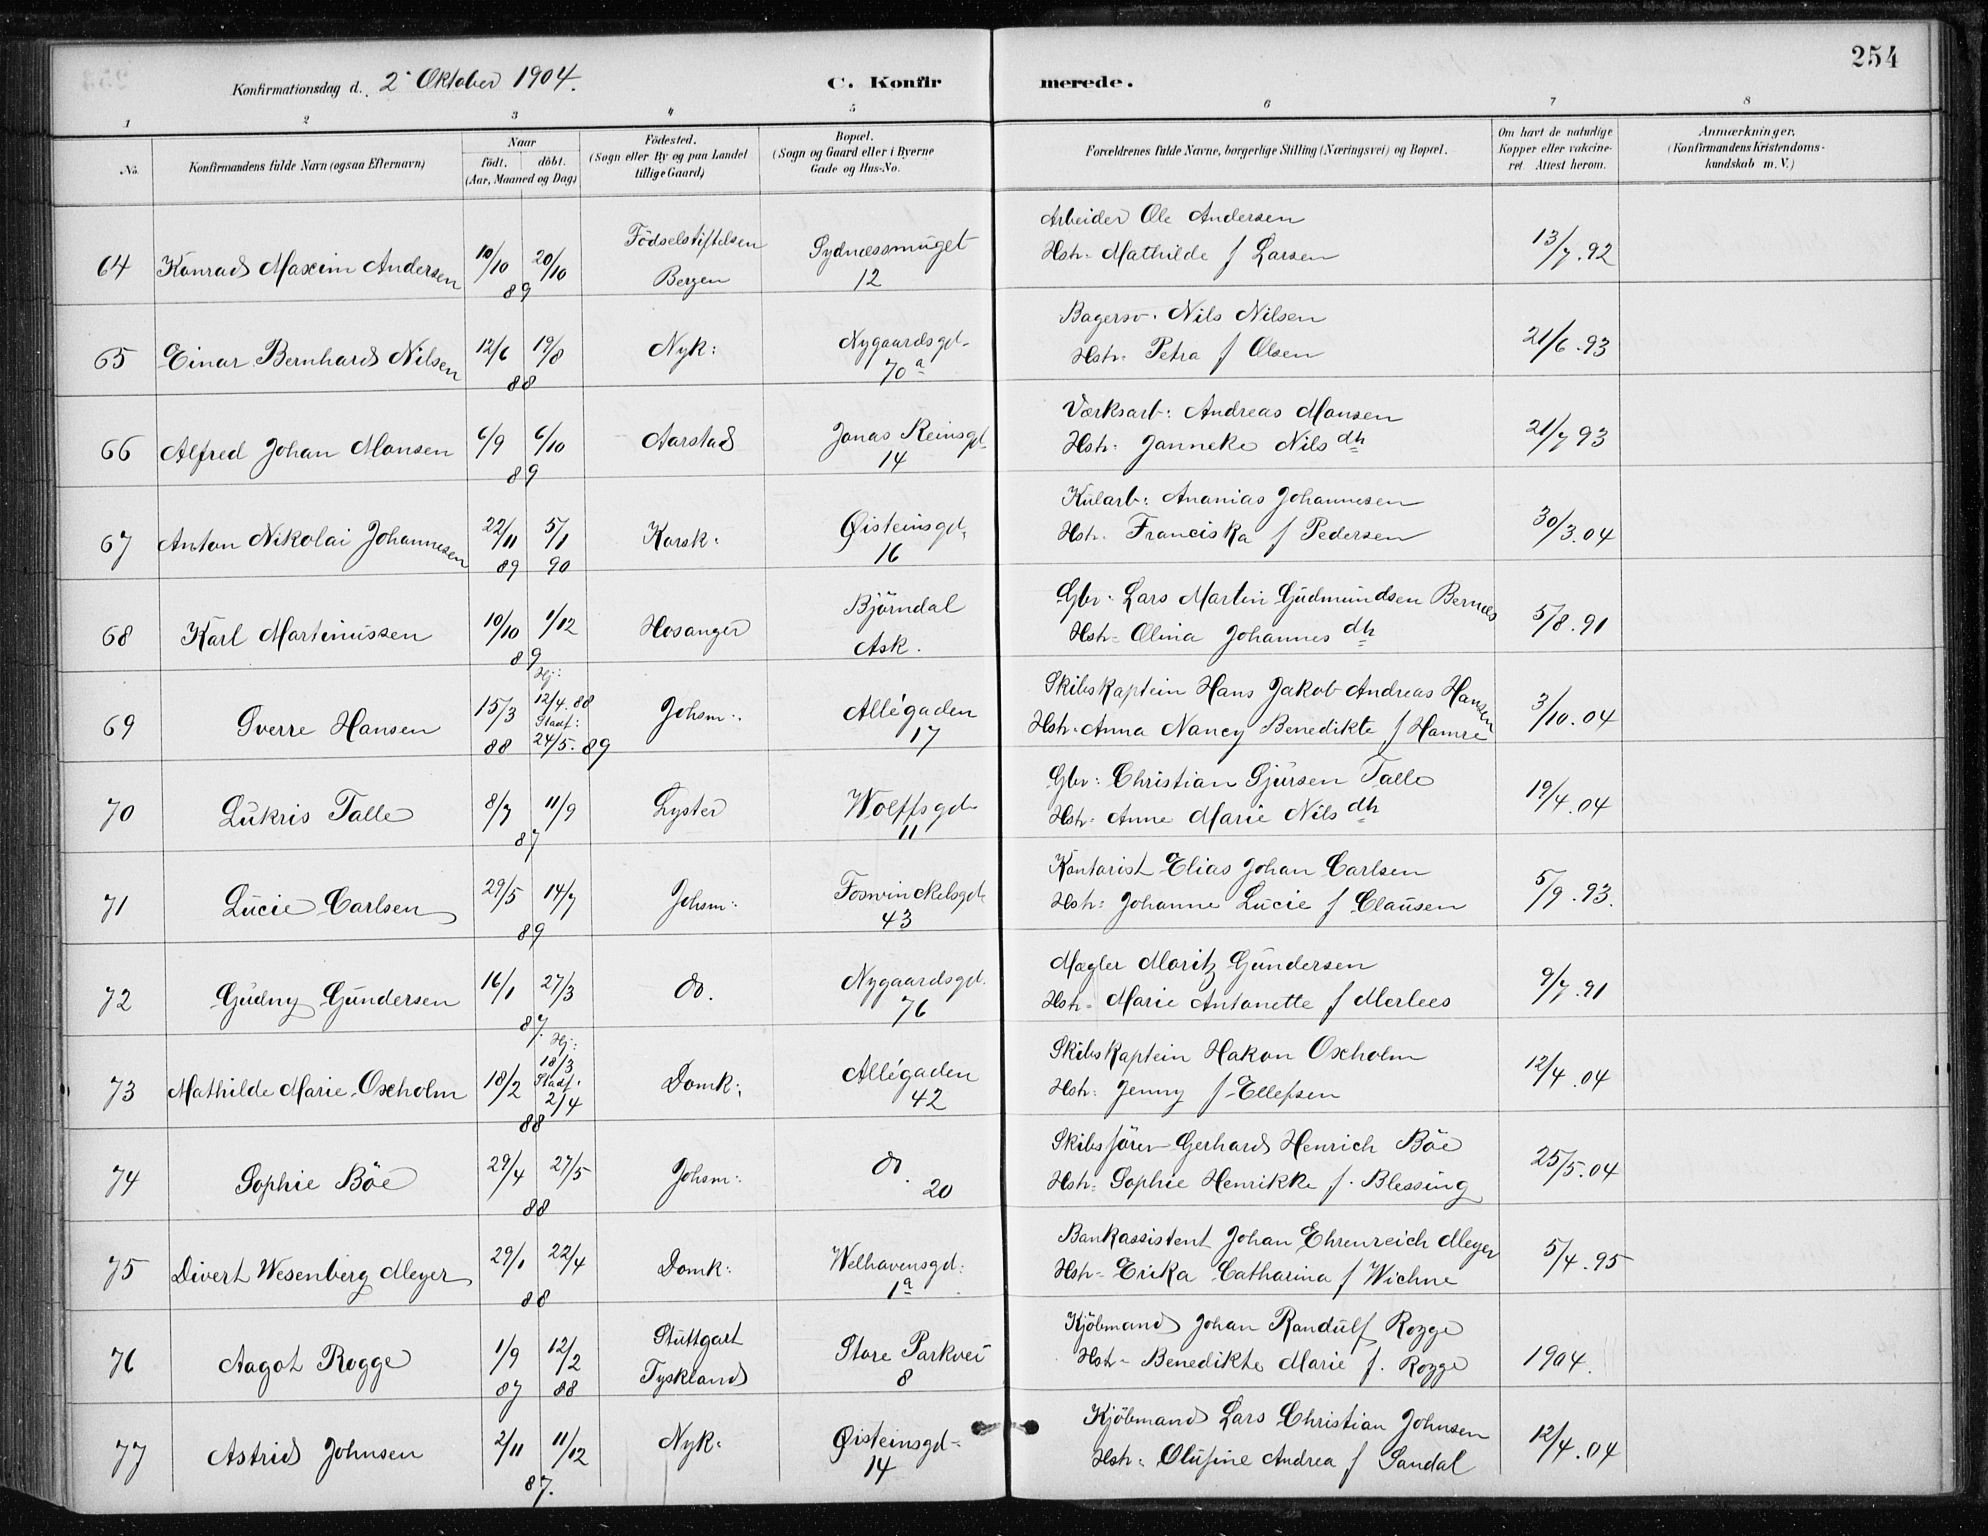 254
Konfirmationsdag d. 2 Oktober 1904. C. Konfirmerede.
1 2 3 4 5 6 7 8
No. Konfirmandens fulde Navn (ogsaa Efternavn) Naar födt. döbt. (Aar, Maaned og Dag) Födested. (Sogn eller By og paa Landet tillige Gaard) Bopæl. (Sogn og Gaard eller i Byerne Gade og Hus-No. Forældrenes fulde Navne, borgerlige Stilling (Næringsvei) og Bopæl. Om havt de naturlige Kopper eller vakcineret. Attest herom. Anmærkninger. (Konfirmandens Kristendomskundskab m. V.)
64 Konrad Maxim Andersen 10/10 20/10 89 Födselstiftelsen Bergen Sydnæssmuget 12 Arbeider Ole Andersen
Hstr. Mathilde f Larsen 13/7.92
65 Einar Bernhard Nilsen 12/6 19/8 88 Nyk: Nygaardsgd. 70a Bagersv. Nils Nilsen
Hstr. Petra f Olsen 21/6.93
66 Alfred Johan Monsen 6/9 6/10 89 Aarstad Jonas Reinsgd. 14 Værksarb: Andreas Monsen
Hstr: Janneke Nilsdtr 21/7 93
67 Anton Nikolai Johannesen 22/11 89 5/1 90 Korsk: Øisteinsgd. 16 Kularb: Ananias Johannesen
Hstr. Franciska f Pedersen 30/3.04
68 Karl Martinussen 10/10 1/12 89 Hosanger Björndal Ask. Gbr. Lars Martin Gudmundsen Bernæs
Hstr. Olina Johannesdtr 5/8.91
69 Sverre Hansen 15/3 88 Hj: 12/4.88 Stadf: 24/5.89 Johsm: Allégaden 17 Skibskaptein Hans Jakob Andreas Hansen
Hstr. Anna Nancy Benedikte f Hamre 3/10.04
70 Lukris Talle 8/7 11/9 87 Lyster Wolffsgd. 11 Gbr: Christian Gjursen Talle
Hstr. Anne Marie Nilsdtr 19/4.04
71 Lucie Carlsen 29/5 14/7 89 Johsm: Foswinckelsgd. 43 Kontorist Elias Johan Carlsen
Hstr: Johanne Lucie f Clausen 5/9.93.
72 Gudny Gundersen 16/1 27/3 87. do. Nygaardsgd. 76 Mægler Moritz Gundersen
Hstr. Marie Antonette f Merlees 9/7.91
73 Mathilde Marie Oxholm 18/2 Hj: 18/3 Stadf. 2/4 88 Domk: Allégaden 42 Skibskaptein Hakon Oxholm
Hstr: Jenny f Ellefsen 12/4.04
74 Sophie Böe 29/4 27/5 88 Johsm: do. 20 Skibsförer Gerhard Henrich Böe
Hstr: Sophie Henrikke f. Blessing 25/5.04
75 Divert Wesenberg Meyer 29/1 22/4 88 Domk: Welhavensgd: 1a Bankassistent Johan Ehrenreich Meyer
Hstr. Erika Catharina f Wichne 5/4.95
76 Aagot Rogge 1/9 87 12/2 88 Stuttgart Tyskland Store Parkvei 8 Kjöbmand Johan Randulf Rogge
Hstr. Benedikte Marie f. Rogge 1904.
77 Astrid Johnsen 2/11 11/12 87. Nyk: Øisteinsgd. 14 Kjöbmand Lars Christian Johnsen
Hstr: Olufine Andrea f Sandal 12/4.04